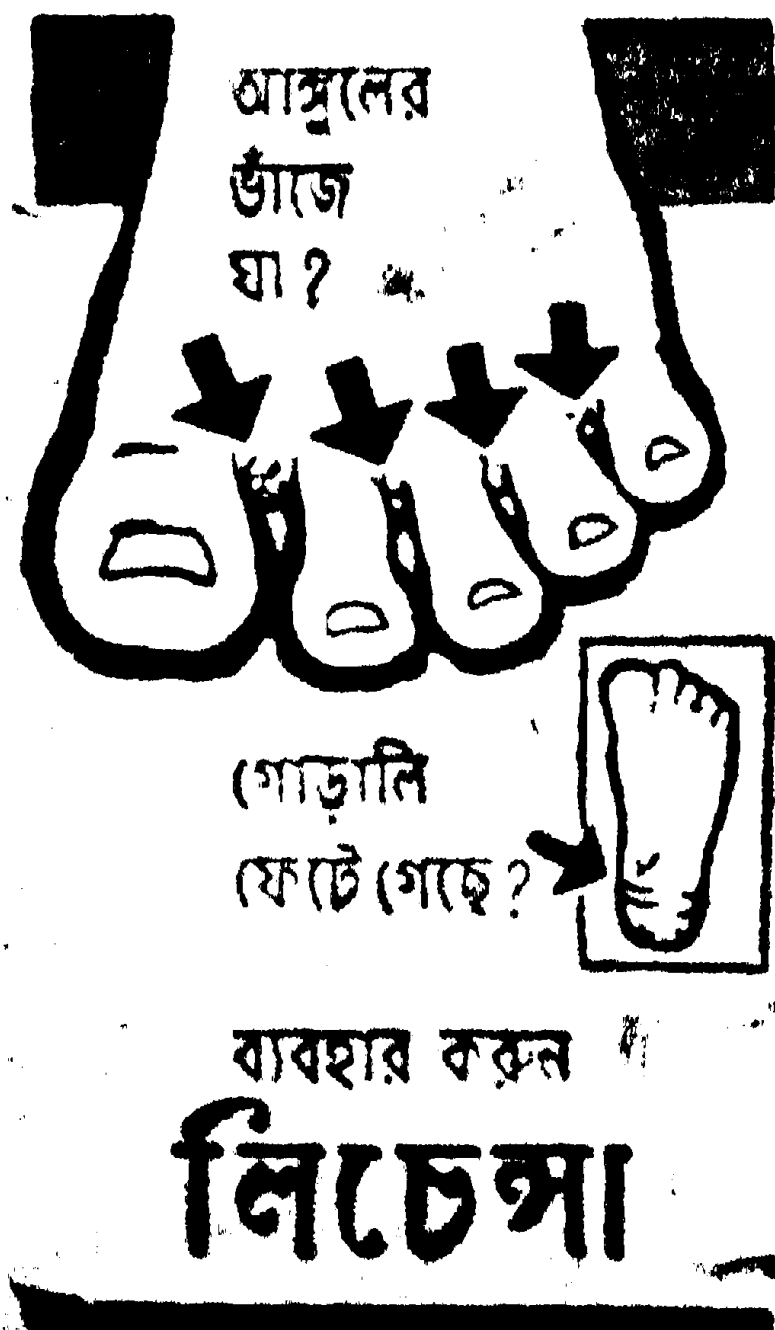 আঙ্গুলের
ভাঁজে
ঘা ?
গোড়ালি
ফেটে গেছে ?
ব্যবহার করুন
লিচেন্সা